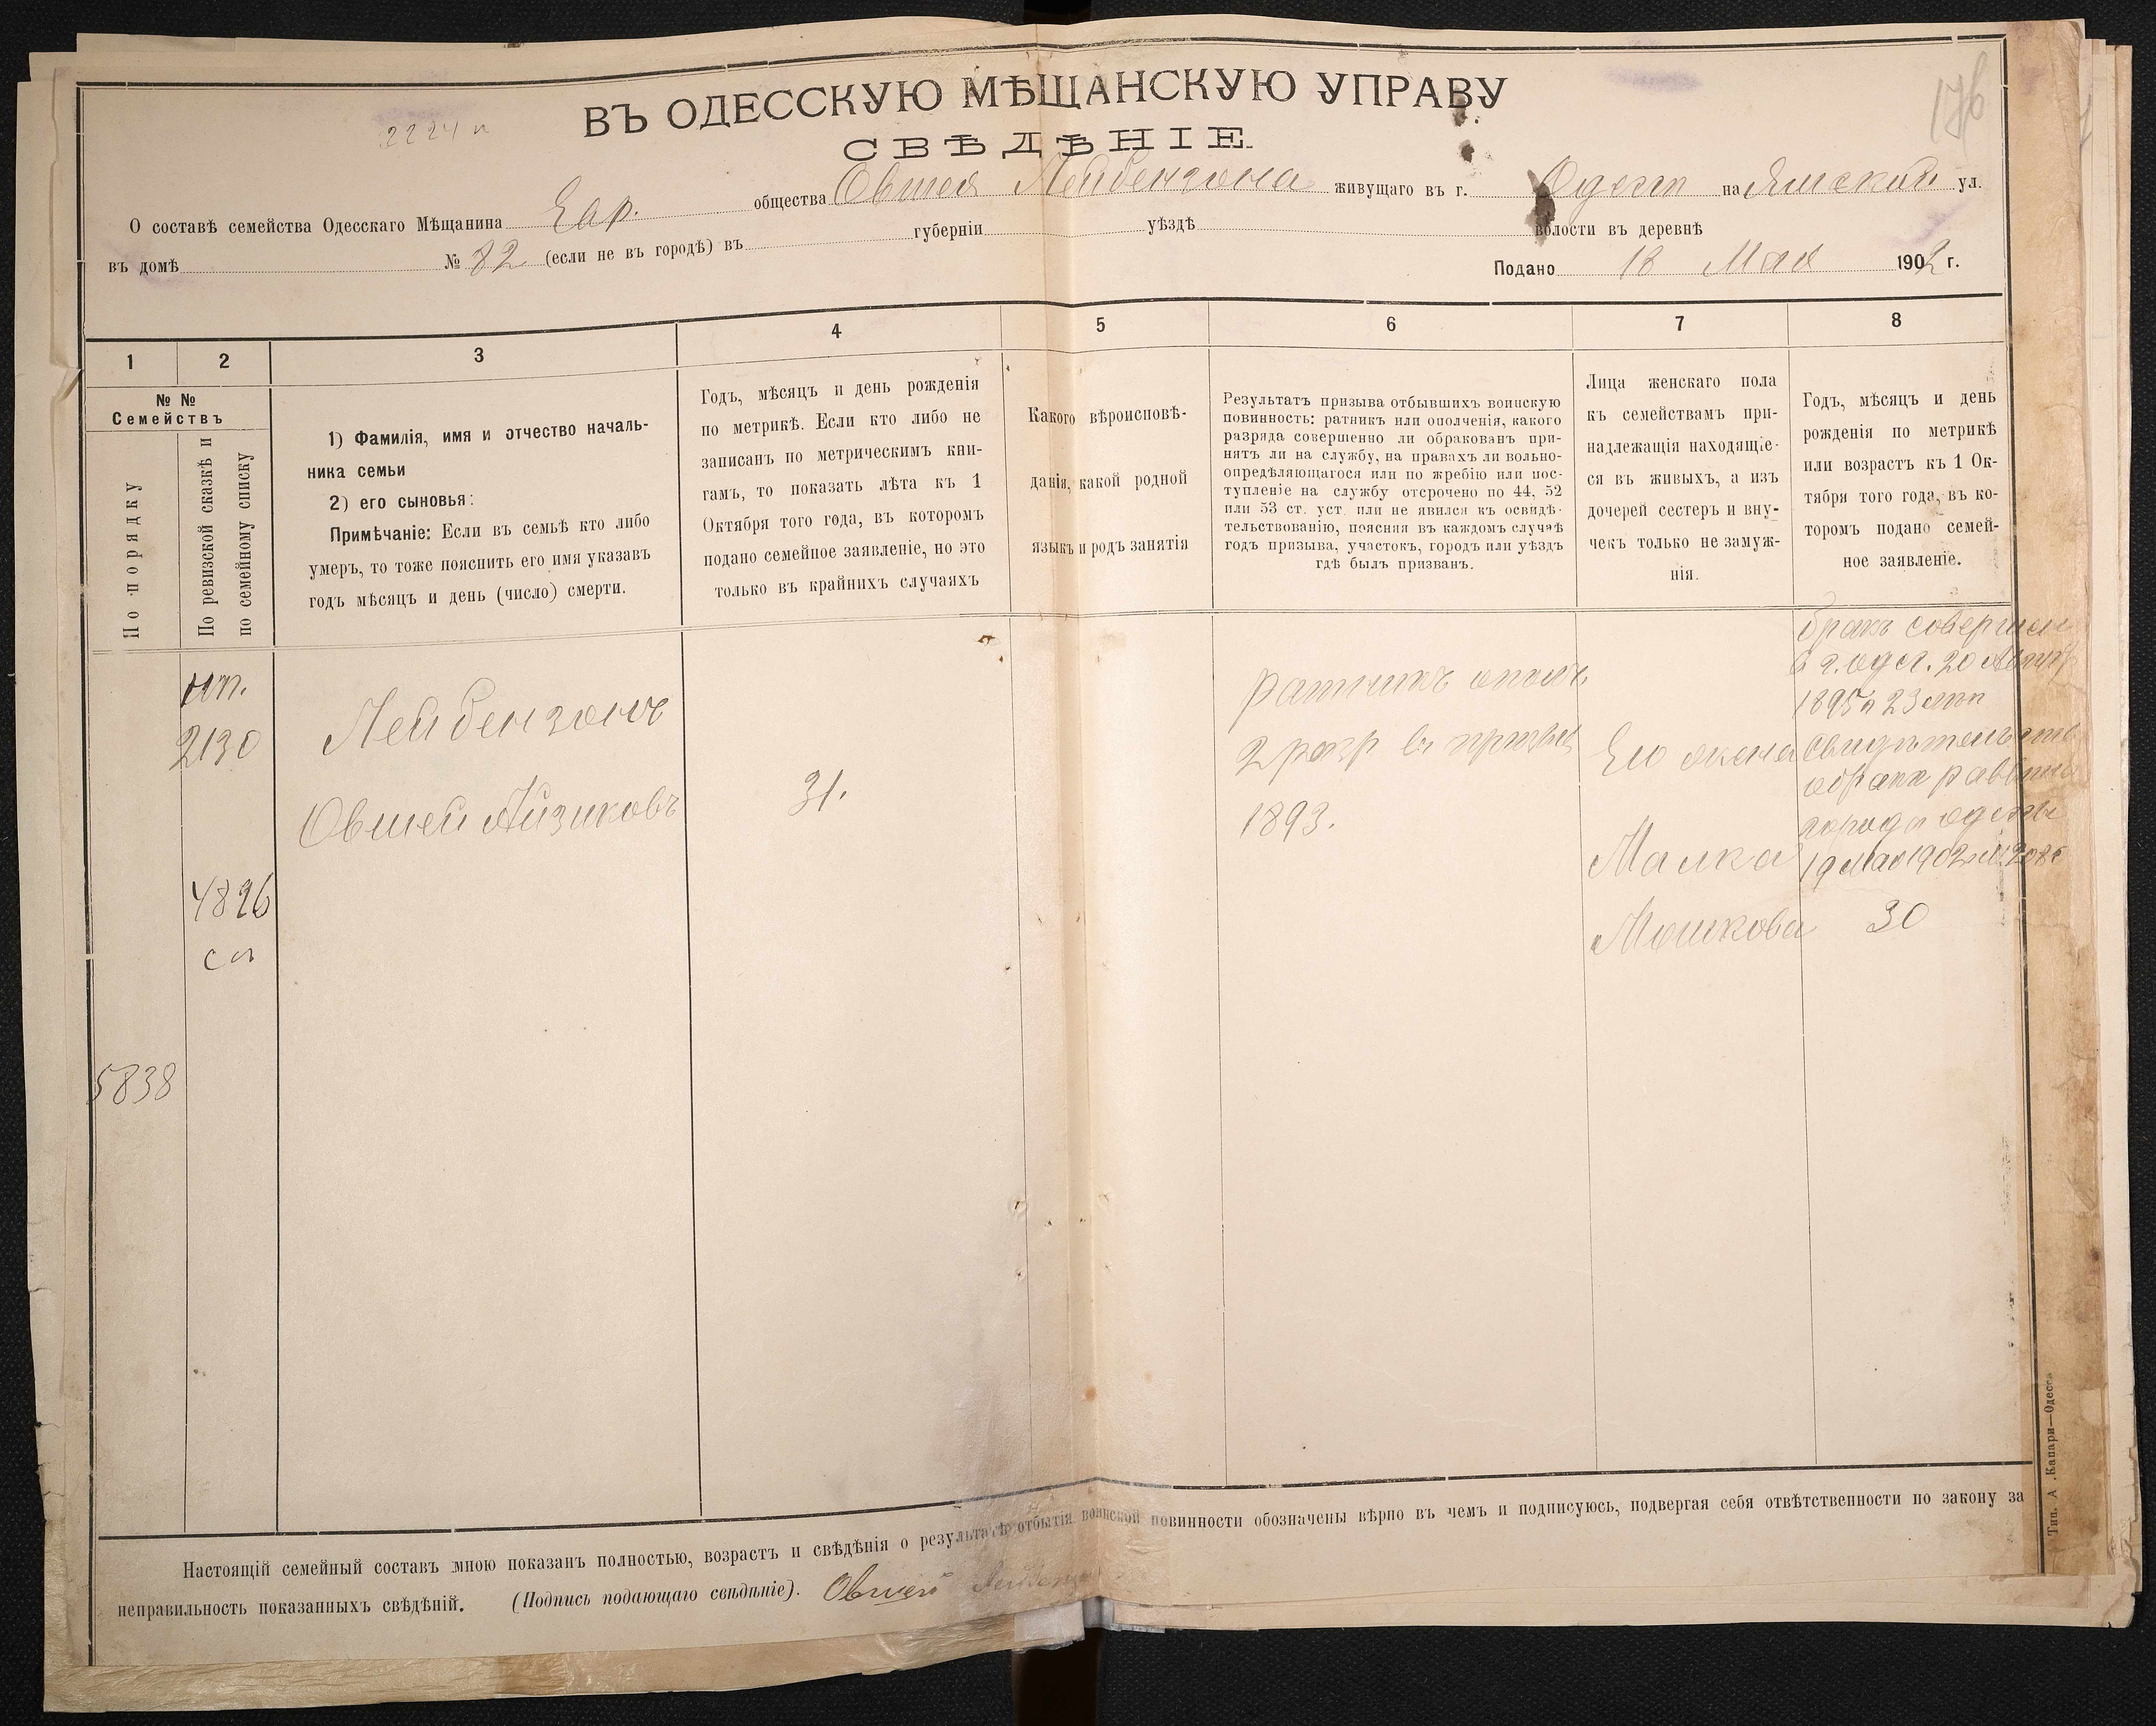 176
2224 п
ВЪ ОДЕССКУЮ МѢЩАНСКУЮ УПРАВУ
СВѢДѢНІЕ
О составѣ семейства Одесскаго Мѣщанина Евр. общества Овшея Лейбензона живущаго въ г. Одессѣ на Ямской ул.
въ домѣ № 82 (если не въ городѣ) въ губерніи уѣздѣ волости въ деревнѣ
Подано 18 Мая 1902 г.
1 2 3 4 5 6 7 8
№ №
Семействъ
По порядку
По ревизской сказкѣ и
по семейному списку
1) Фамилія, имя и отчество началь-
ника семьи
2) его сыновья:
Примѣчаніе: Если въ семьѣ кто либо
умеръ, то тоже пояснить его имя указавъ
годъ мѣсяцъ и день (число) смерти.
Годъ, мѣсяцъ и день рожденія
по метрикѣ. Если кто либо не
записанъ по метрическимъ кни-
гамъ, то показать лѣта къ 1
Октября того года, въ которомъ
подано семейное заявленіе, но это
только въ крайнихъ случаяхъ
Какого вѣроисповѣ-
данія, какой родной
языкъ и родъ занятія
Результатъ призыва отбывшихъ воинскую
повинность: ратникъ или ополченія, какого
разряда совершенно ли обракованъ при-
нятъ ли на службу, на правахъ ли вольно-
опредѣляющагося или по жребію или пос-
тупленіе на службу отсрочено по 44, 52
или 53 ст. уст. или не явился къ освидѣ-
тельствованію, поясняя въ каждомъ случаѣ
годъ призыва, участокъ, городъ или уѣздъ
гдѣ былъ призванъ.
Лица женскаго пола
къ семействамъ при-
надлежащія находящіе-
ся въ живыхъ, а изъ
дочерей сестеръ и вну-
чекъ только не замуж-
нія.
Годъ, мѣсяцъ и день
рожденія по метрикѣ
или возрастъ къ 1 Ок-
тября того года, въ ко-
торомъ подано семей-
ное заявленіе.
2130
4826
сп
5838
Лейбензонъ
Овшей Айзиковъ
31.
ратникъ ополч.
2 разр въ призывъ
1893.
Его жена
Малка
Мошкова
бракъ совершен
в г. одес. 20 Август
1895 г 23 лѣт
Свидѣтельство
о бракѣ раввина
города одессы
19 Мая 1902 г №
30
Настоящій семейный составъ мною показанъ полностью, возрастъ и свѣдѣнія о результатѣ отбытія воинской повинности обозначены вѣрно въ чемъ и подписуюсь, подвергая себя отвѣтственности по закону за
неправильность показанныхъ свѣдѣній. (Подпись подающаго свѣдѣніе). Овшей
Тип. А. Капари—Одесса